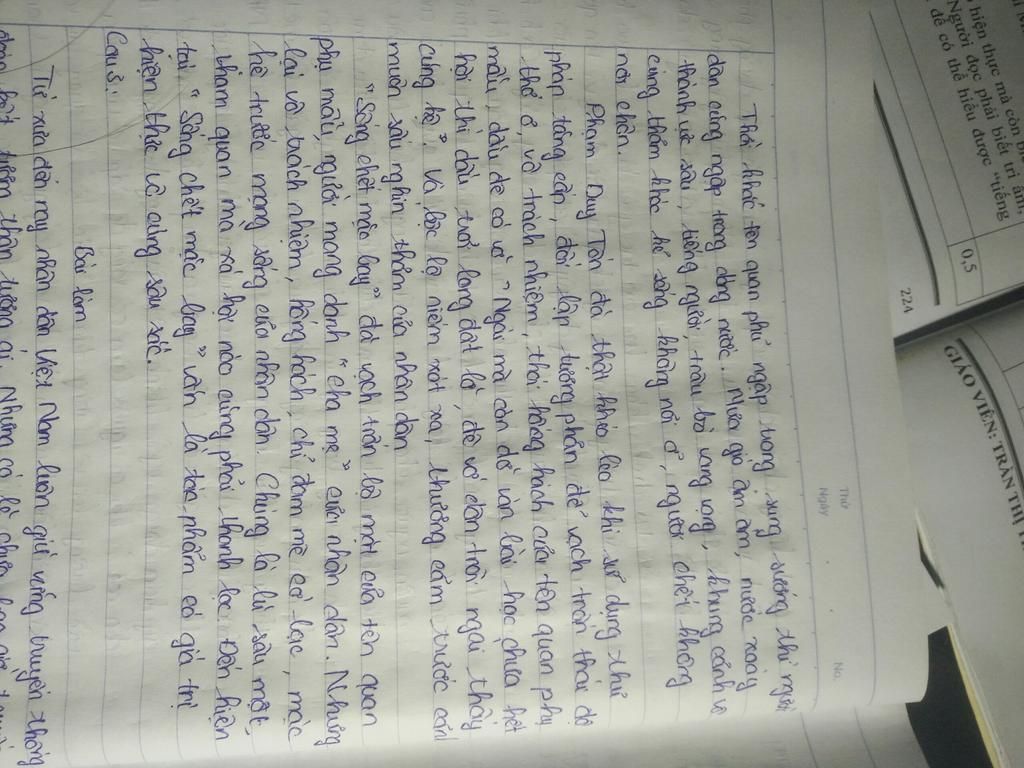 Thứ
Ngày
No.
Thời khắc tên quan phủ ngập trong sung sướng thì người
dân cũng ngập trong dòng nước. Mưa gió ầm ầm, nước xoáy
thành vực sâu, tiếng người, trâu bò vang vọng, khung cảnh vô
cùng thảm khốc kẻ sống không nơi ở, người chết không
nơi chôn.
Phạm Duy Tốn đã thật khéo léo khi sử dụng thủ
pháp tăng cấp, đối lập tương phản để vạch trần thái độ
thờ ơ, vô trách nhiệm, thói hống hách của tên quan phụ
mẫu, dẫu đê có vỡ "Ngài mà còn dở ván bài hoặc chưa hết
hồi thì dầu trời long đất lở, đê vỡ dân trôi ngài thây
cũng kệ". Và bộc lộ niềm xót xa, thương cảm trước cảnh
muôn sầu nghìn thảm của nhân dân
"Sống chết mặc bay" đã vạch trần bộ mặt của tên quan
phụ mẫu, người mang danh "cha mẹ" của nhân dân. Nhưng
lại vô trách nhiệm, hống hách, chỉ đam mê cờ bạc, mặc
kệ trước mạng sống của nhân dân. Chúng là lũ sâu mọt,
tham quan mà xã hội nào cũng phải thanh lọc. Đến hiện
tại "Sống chết mặc bay" vẫn là tác phẩm có giá trị
hiện thực vô cùng sâu sắc.
Câu 5:
Bài làm
Từ xưa đến nay nhân dân Việt Nam luôn giữ vững truyền thống
hiện thực mà còn
Người đọc phải biết trị ảnh,
để có thể hiểu được "tiếng
0,5
224
GIÁO VIÊN: TRẦN THỊ